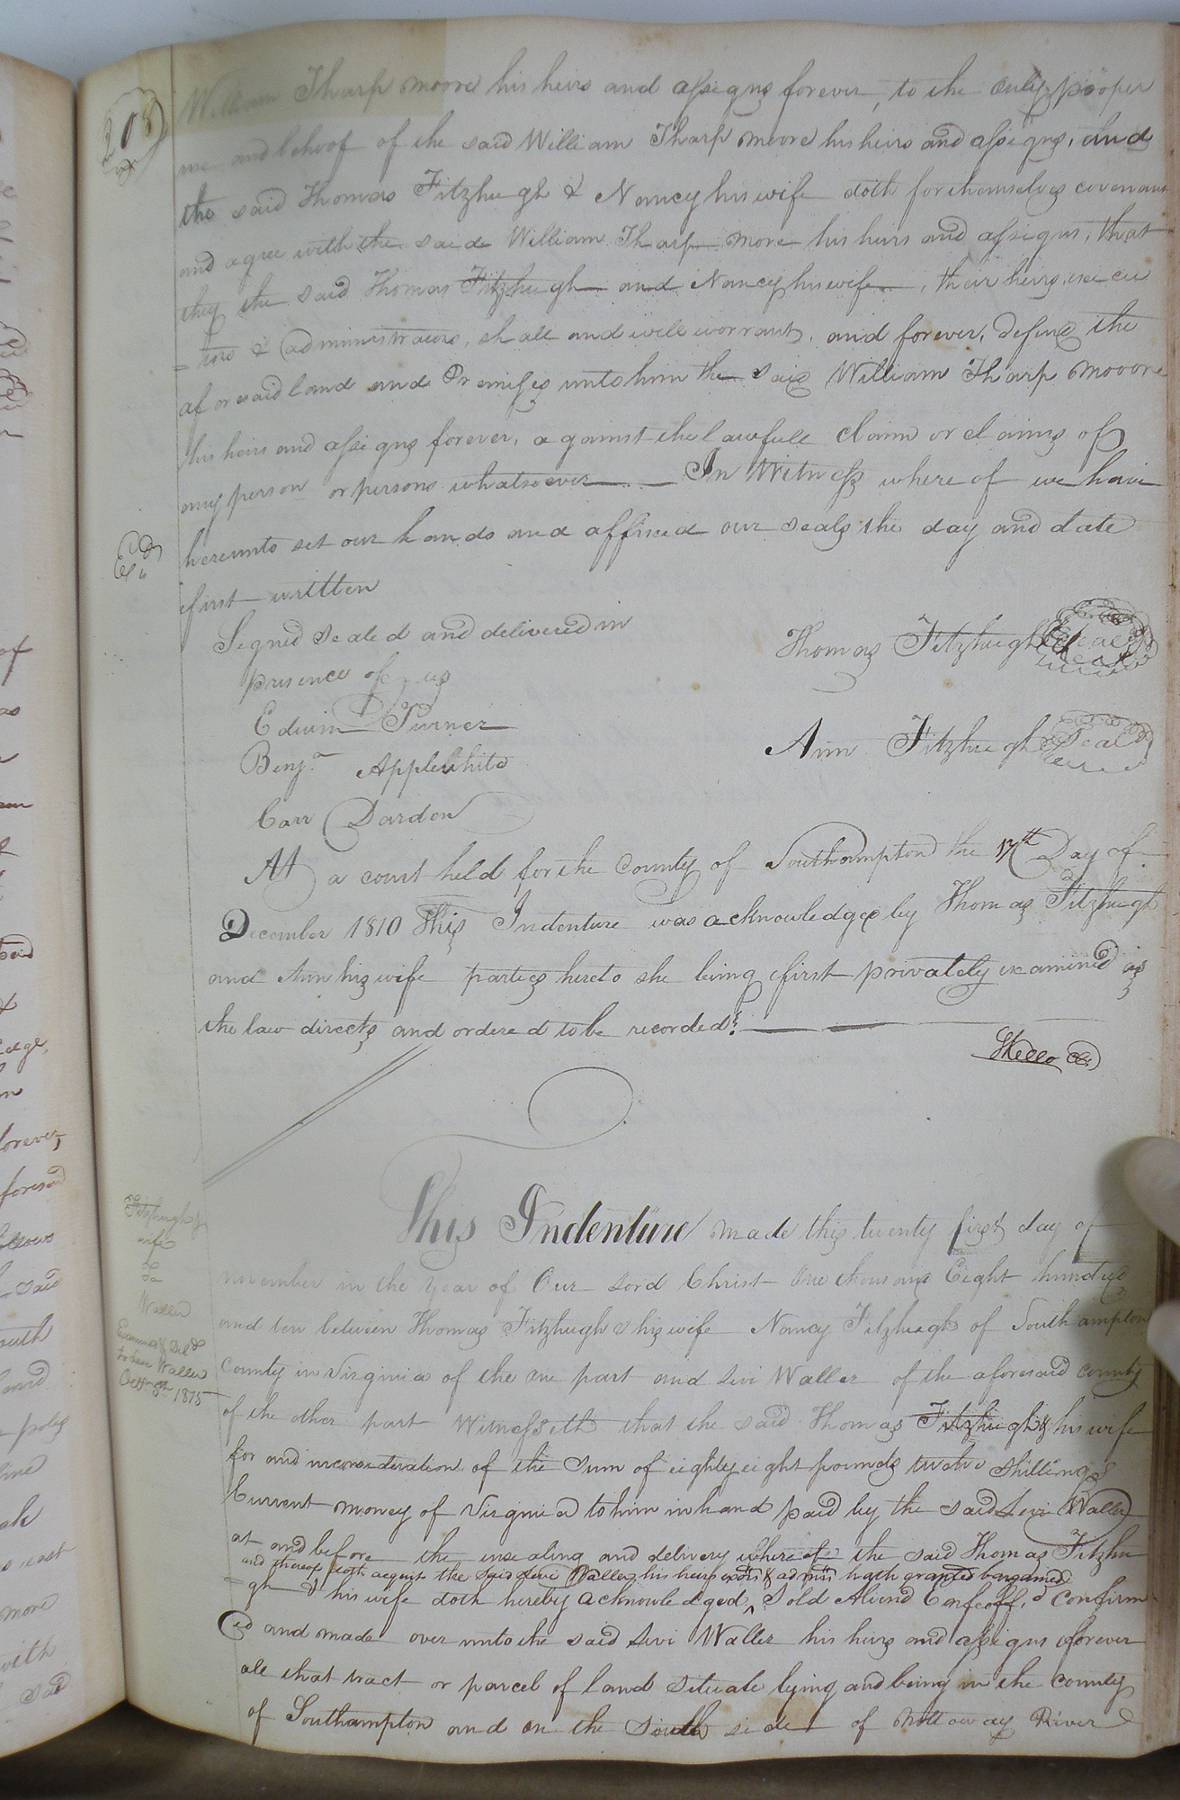 208
William Tharp moore his heirs and assigns forever, to the only proper
use and behoof of the said William Tharp moore his heirs and assigns, and
the said Thomas Fitzhugh & Nancy his wife doth for themselves covenant
and agree with the said William Tharp more his heirs and assigns, that
they the said Thomas Fitzhugh and Nancy his wife, their heirs, execu
=tors & administrators, shall and will warrant, and forever, defend the
aforesaid land and Premises unto him the said William Tharp moore
his heirs and assigns forever, against the lawfull claim or claims of
any person or persons whatsoever — In Witness where of we have
hereunto set our hands and affixed our seals the day and date
first written
Signed sealed and delivered in
presence of us
Thomas Fitzhugh Seal
Edwin Turner
Benja Applewhite
Ann Fitzhugh Seal
Carr Darden
At a court held for the county of Southampton the 17th Day of
December 1810 This Indenture was acknowledged by Thomas Fitzhugh
and Ann his wife parties hereto she being first privately examined as
the law directs and ordered to be recorded
Fitzhugh &
wife
To
Waller
Examd & deld
to Levi Waller
Octr 8th 1815
This Indenture made this twenty first day of
november in the year of Our Lord Christ One thousand Eight hundred
and ten between Thomas Fitzhugh & his wife Nancy Fitzhugh of Southampton
County in Virginia of the one part and Levi Waller of the aforesaid county
of the other part Witnesseth that the said Thomas Fitzhugh & his wife
for and in consideration of the Sum of eighty eight pounds twelve shillings
Current money of Virginia to him in hand paid by the said Levi Waller
at and before the ensealing and delivery where of the said Thomas Fitzhu
and thereof doth acquit the said Levi Waller his heirs exors & admrs hath granted bargained
=gh & his wife doth hereby acknowledged, ^ Sold Aliend Enfeoff,d Confirm
ed and made over unto the said Levi Waller his heirs and assigns forever
all that tract or parcel of land situate lying and being in the county
of Southampton and on the South side of Nottoway River